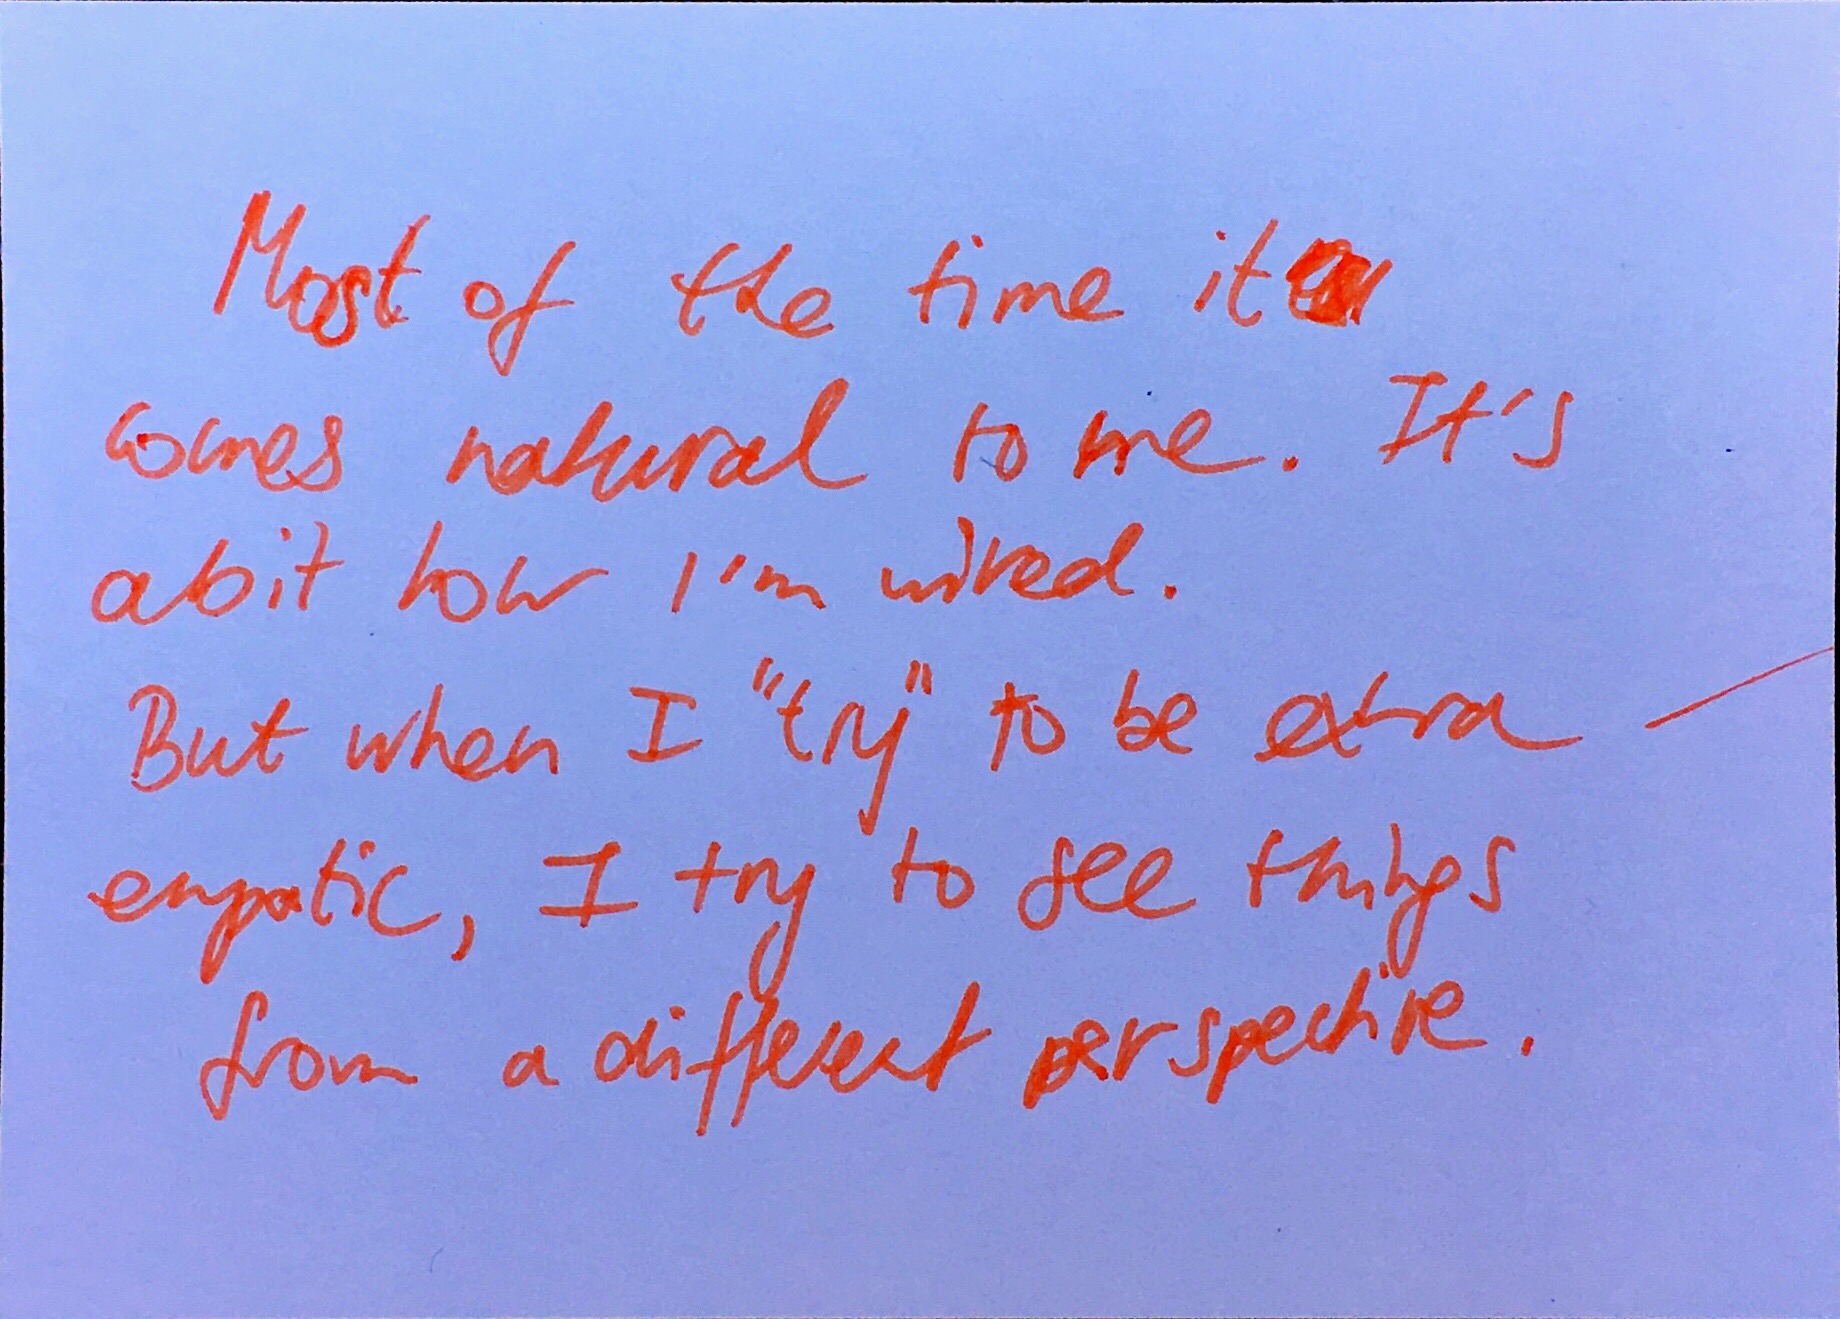 Most of the time it
comes natural to me. It's
a bit how I'm wired.
But when I "try" to be extra
empatic, I try to see things
from a different perspective.